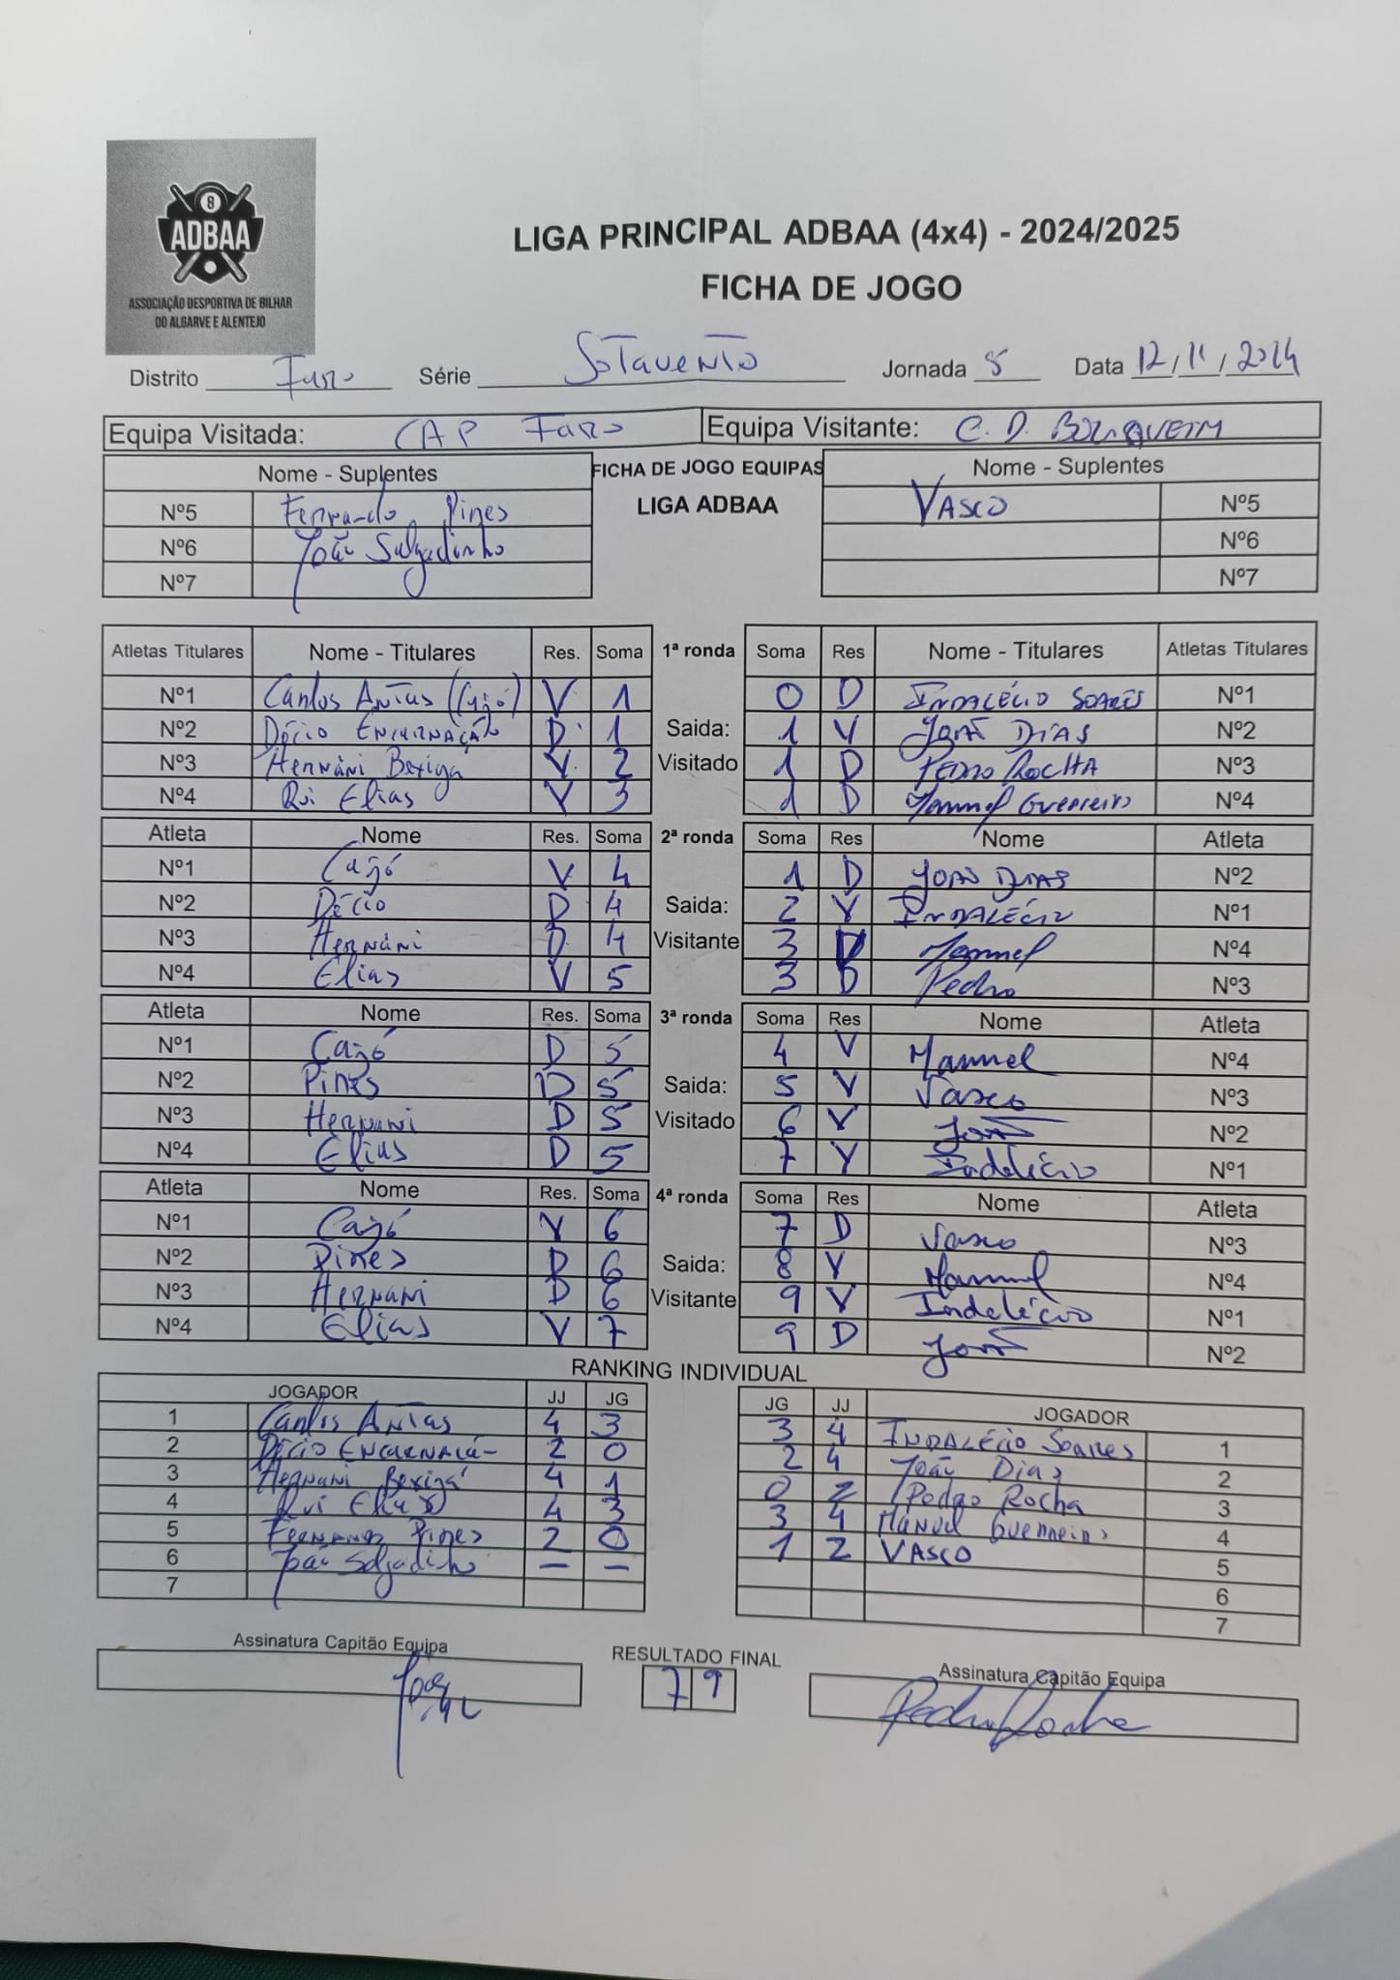 8
ADBAA
ASSOCIAÇÃO DESPORTIVA DE BILHAR
DO ALGARVE E ALENTEJO
LIGA PRINCIPAL ADBAA (4x4) - 2024/2025
FICHA DE JOGO
Distrito Faro Série Sotavento Jornada 5 Data 12/11/2024
Equipa Visitada: CAP Faro Equipa Visitante: C. D. BOLIQUEIM
Nome - Suplentes FICHA DE JOGO EQUIPAS Nome - Suplentes
LIGA ADBAA
Nº5 Fernando Pires VASCO Nº5
Nº6 João Salgadinho Nº6
Nº7 Nº7
Atletas Titulares Nome - Titulares Res. Soma 1ª ronda Soma Res Nome - Titulares Atletas Titulares
Nº1 Carlos Antas (Cajó) V 1 0 D INDALÉCIO SOARES Nº1
Nº2 Décio ENCARNAÇÃO D 1 Saida: 1 V JOÃO DIAS Nº2
Nº3 Hernâni Bexiga V 2 Visitado 1 D PEDRO ROCHA Nº3
Nº4 Rui Elias V 3 1 D Manuel Guerreiro Nº4
Atleta Nome Res. Soma 2ª ronda Soma Res Nome Atleta
Nº1 Cajó V 4 1 D JOÃO DIAS Nº2
Nº2 Décio D 4 Saida: 2 V INDALÉCIO Nº1
Nº3 Hernâni D 4 Visitante 3 Manuel Nº4
Nº4 Elias V 5 3 D Pedro Nº3
Atleta Nome Res. Soma 3ª ronda Soma Res Nome Atleta
Nº1 Cajó D 5 4 V Manuel Nº4
Nº2 Pires D 5 Saida: 5 V Vasco Nº3
Nº3 Hernani D 5 Visitado 6 V João Nº2
Nº4 Elias D 5 7 V Indalécio Nº1
Atleta Nome Res. Soma 4ª ronda Soma Res Nome Atleta
Nº1 Cajó V 6 7 D Vasco Nº3
Nº2 Pires D 6 Saida: 8 V Manuel Nº4
Nº3 Hernani D 6 Visitante 9 V Indelécio Nº1
Nº4 Elias V 7 9 D João Nº2
RANKING INDIVIDUAL
JOGADOR JJ JG JG JJ JOGADOR
1 Carlos Antas 4 3 3 4 INDALÉCIO Soares 1
2 Décio 2 0 2 4 João Dias 2
3 Hernani Bexiga 4 1 0 2 Pedro Rocha 3
4 Rui Elias 4 3 3 4 Manuel Guerreiro 4
5 Pires 2 0 1 2 VASCO 5
6 João Salgadinho — — 6
7 7
Assinatura Capitão Equipa RESULTADO FINAL Assinatura Capitão Equipa
7 9 Pedro Rocha